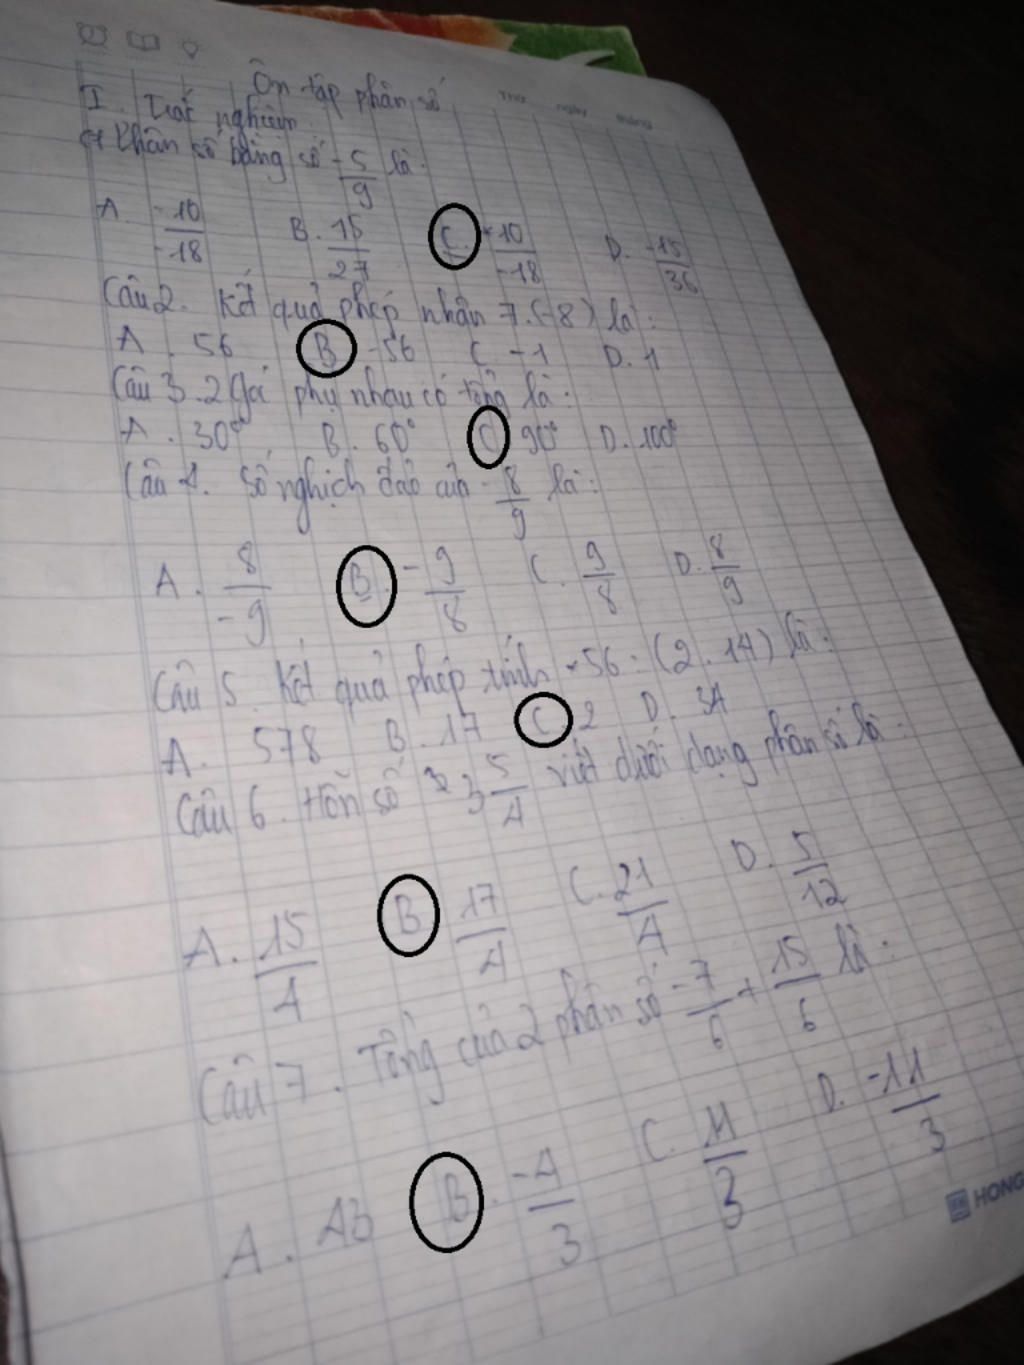 Thứ ngày tháng
Ôn tập phân số
I. Trắc nghiệm
C1 Phân số bằng số -5/9 là:
A. -10/-18 B. 15/27 C. -10/-18 D. -15/36
Câu 2. Kết quả phép nhân 7.(-8) là:
A. 56 B -56 C. -1 D. 1
Câu 3. 2 góc phụ nhau có tổng là:
A. 30° B. 60° C 90° D. 100°
Câu 4. Số nghịch đảo của -8/9 là:
A. 8/-9 B. -9/8 C. 9/8 D. 8/9
Câu 5. Kết quả phép tính -56 : (2.14) là:
A. 578 B. 17 C. 2 D. 34
Câu 6. Hỗn số 3 5/4 viết dưới dạng phân số là:
A. 15/4 B. 17/4 C. 21/4 D. 5/12
Câu 7. Tổng của 2 phân số -7/6 + 15/6 là:
A. 43 B. -4/3 C. 11/3 D. -11/3
HONG